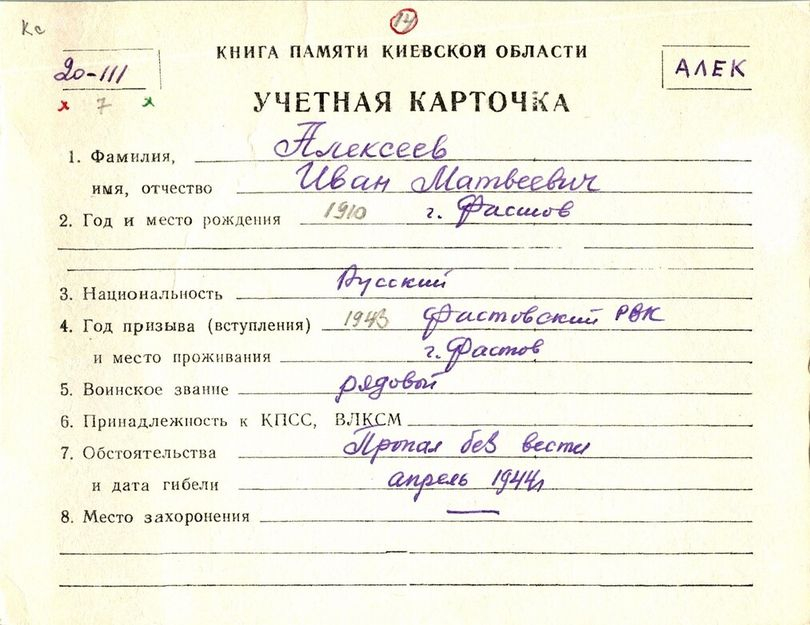 Кс
14
КНИГА ПАМЯТИ КИЕВСКОЙ ОБЛАСТИ
20-III
АЛЕК
х 7 х
УЧЕТНАЯ КАРТОЧКА
1. Фамилия, Алексеев
имя, отчество Иван Матвеевич
2. Год и место рождения 1910 г. Фастов
3. Национальность Русский
4. Год призыва (вступления) 1943 Фастовский РВК
и место проживания г. Фастов
5. Воинское звание рядовой
6. Принадлежность к КПСС, ВЛКСМ
7. Обстоятельства Пропал без вести
и дата гибели апрель 1944г
8. Место захоронения —